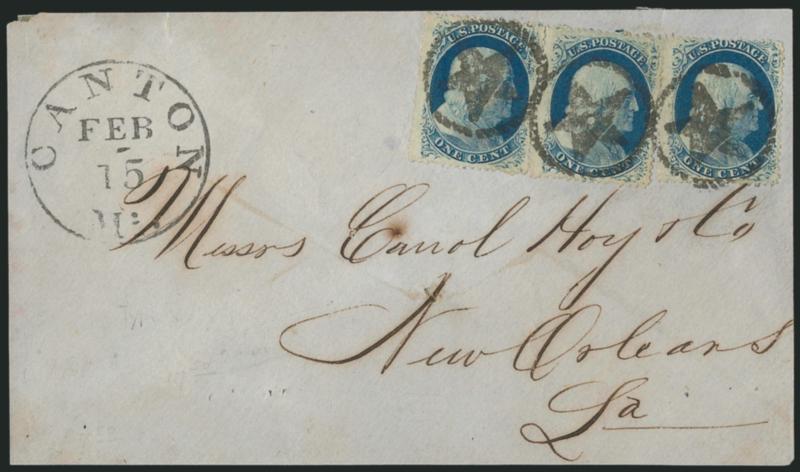 CANTON
FEB
15
U.S. POSTAGE
ONE CENT
U.S. POSTAGE
ONE CENT
U.S. POSTAGE
ONE CENT
Messrs Carrol Hoy & Co
New Orleans
La